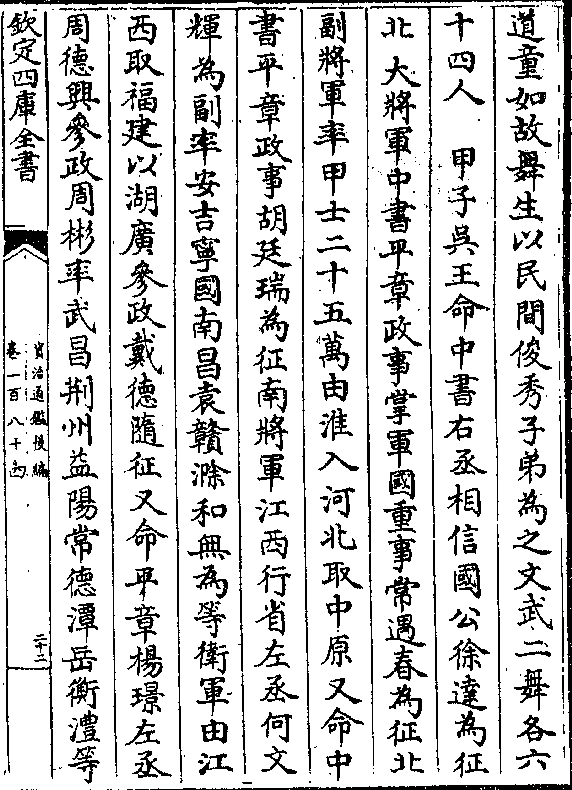 道童如故舞生以民間俊秀子弟為之文武二舞各六
十四人　甲子吳王命中書右丞相信國公徐達為征
北大將軍中書平章政事掌軍國重事常遇春為征北
副將軍率甲士二十五萬由淮入河北取中原又命中
書平章政事胡廷瑞為征南將軍江西行省左丞何文
輝為副率安吉寧國南昌袁贛滁和無為等衛軍由江
西取福建以湖廣參政戴德隨征又命平章楊璟左丞
周德興參政周彬率武昌荆州益陽常德潭岳衡澧等
欽定四庫全書
資治通鑑後編
卷一百八十
二十二